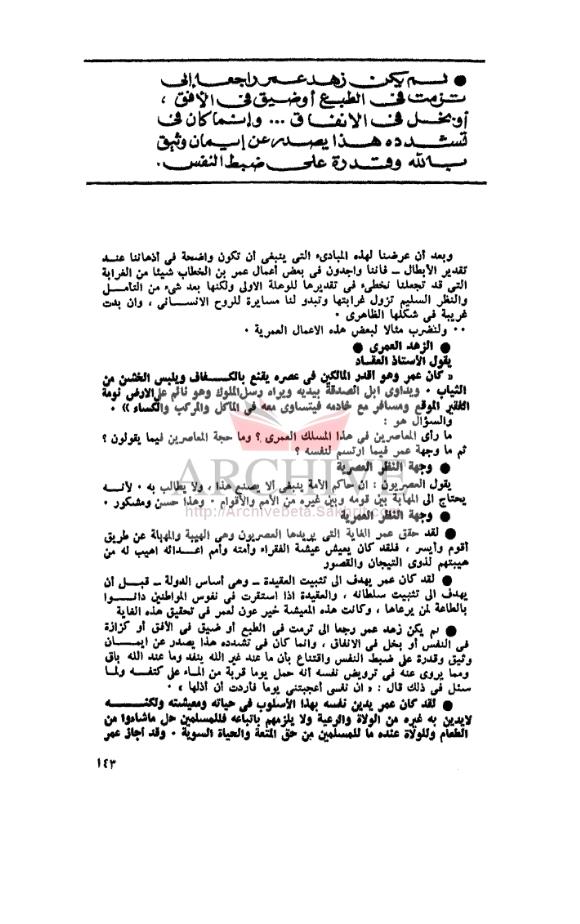 ● لم يكن زهد عمر راجعا إلى
تزمت فى الطبع أو ضيق فى الأفق ،
أو بخل فى الانفاق ... وإنما كان فى
تشدده هذا يصدر عن إيمان وثيق
بالله وقدرة على ضبط النفس .
وبعد أن عرضنا لهذه المبادىء التى ينبغى أن تكون واضحة فى أذهاننا عند
تقدير الأبطال – فاننا واجدون فى بعض أعمال عمر بن الخطاب شيئا من الغرابة
التى قد تجعلنا نخطىء فى تقديرها للوهلة الاولى ولكنها بعد شىء من التأمل
والنظر السليم تزول غرابتها وتبدو لنا مسايرة للروح الانسانى ، وان بدت
غريبة فى شكلها الظاهرى ٠
٠٠ ولنضرب مثالا لبعض هذه الاعمال العمرية ٠
● الزهد العمرى ●
يقول الأستاذ العقاد
« كان عمر وهو أقدر المالكين فى عصره يقنع بالكفاف ويلبس الخشن من
الثياب ٠ ويداوى ابل الصدقة بيديه ويراه رسل الملوك وهو نائم على الأرض نومة
الفقير الموقع ومسافر مع خادمه فيتساوى معه فى المأكل والمركب والكساء » ٠
والسؤال هو :
ما رأى المعاصرين فى هذا المسلك العمرى ؟ وما حجة المعاصرين فيما يقولون ؟
ثم ما وجهة عمر فيما ارتسم لنفسه ؟
● وجهة النظر العصرية
يقول العصريون : ان حاكم الأمة ينبغى ألا يصنع هذا ، ولا يطالب به ٠ لأنه
يحتاج الى المهابة بين قومه وبين غيره من الأمم والأقوام ٠ وهذا حسن ومشكور ٠
● وجهة النظر العمرية
● لقد حقق عمر الغاية التى يريدها العصريون وهى الهيبة والمهابة عن طريق
أقوم وأيسر ، فلقد كان يعيش عيشة الفقراء وأمته وأمم أعدائه أهيب له من
هيبتهم لذوى التيجان والقصور
● لقد كان عمر يهدف الى تثبيت العقيدة – وهى أساس الدولة – قبل أن
يهدف الى تثبيت سلطانه ، والعقيدة اذا استقرت فى نفوس المواطنين دانوا
بالطاعة لمن يرعاها ، وكانت هذه المعيشة خير عون لعمر فى تحقيق هذه الغاية
● لم يكن زهد عمر رجعا الى تزمت فى الطبع أو ضيق فى الأفق أو كزازة
فى النفس أو بخل فى الانفاق ، وانما كان فى تشدده هذا يصدر عن ايمان
وثيق وقدرة على ضبط النفس واقتناع بأن ما عند غير الله ينفد وما عند الله باق
ومما يروى عنه فى ترويض نفسه أنه حمل يوما قربة من الماء على كتفه ولما
سئل فى ذلك قال : « ان نفسى أعجبتنى يوما فأردت أن أذلها » ٠
● لقد كان عمر يدين نفسه بهذا الأسلوب فى حياته ومعيشته ولكنه
لايدين به غيره من الولاة والرعية ولا يلزمهم باتباعه فللمسلمين حل ماشاءوا من
الطعام وللولاة عنده ما للمسلمين من حق المتعة والحياة السوية ٠ وقد أجاز عمر
١٤٣
ARCHIVE
http://Archivebeta.Sakhrit.com